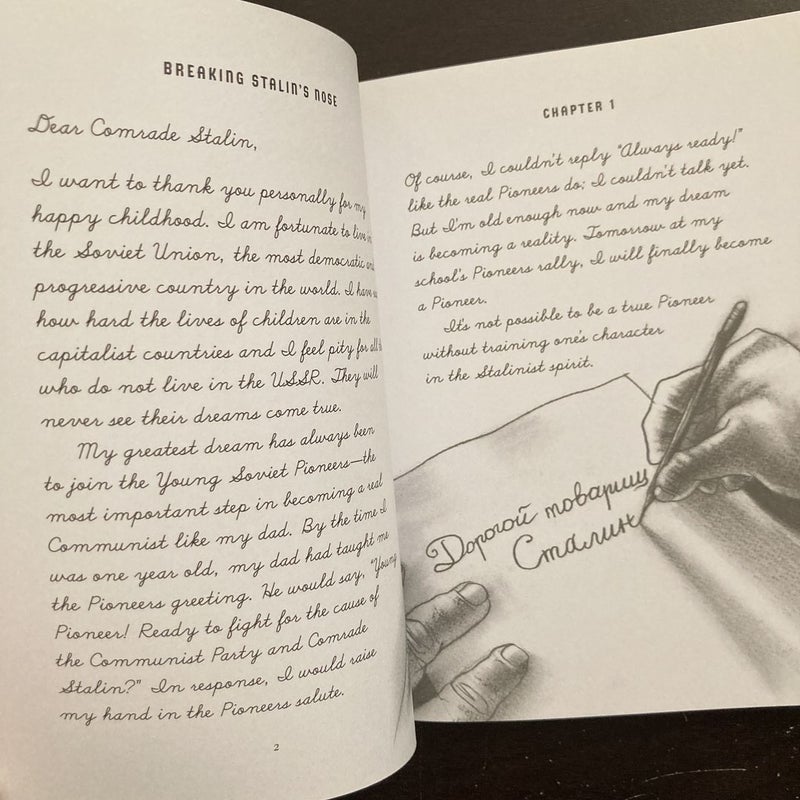 BREAKING STALIN'S NOSE
Dear Comrade Stalin,
I want to thank you personally for my
happy childhood. I am fortunate to live in
the Soviet Union, the most democratic and
progressive country in the world. I have
how hard the lives of children are in the
capitalist countries and I feel pity for all
who do not live in the USSR. They will
never see their dreams come true.
My greatest dream has always been
to join the Young Soviet Pioneers—the
most important step in becoming a real
Communist like my dad. By the time I
was one year old, my dad had taught me
the Pioneers greeting. He would say, "Young
Pioneer! Ready to fight for the cause of
the Communist Party and Comrade
Stalin?" In response, I would raise
my hand in the Pioneers salute.
2
CHAPTER 1
Of course, I couldn't reply "Always ready!"
like the real Pioneers do; I couldn't talk yet.
But I'm old enough now and my dream
is becoming a reality. Tomorrow at my
school's Pioneers rally, I will finally become
a Pioneer.
It's not possible to be a true Pioneer
without training one's character
in the Stalinist spirit.
Дорогой товарищ
Сталин